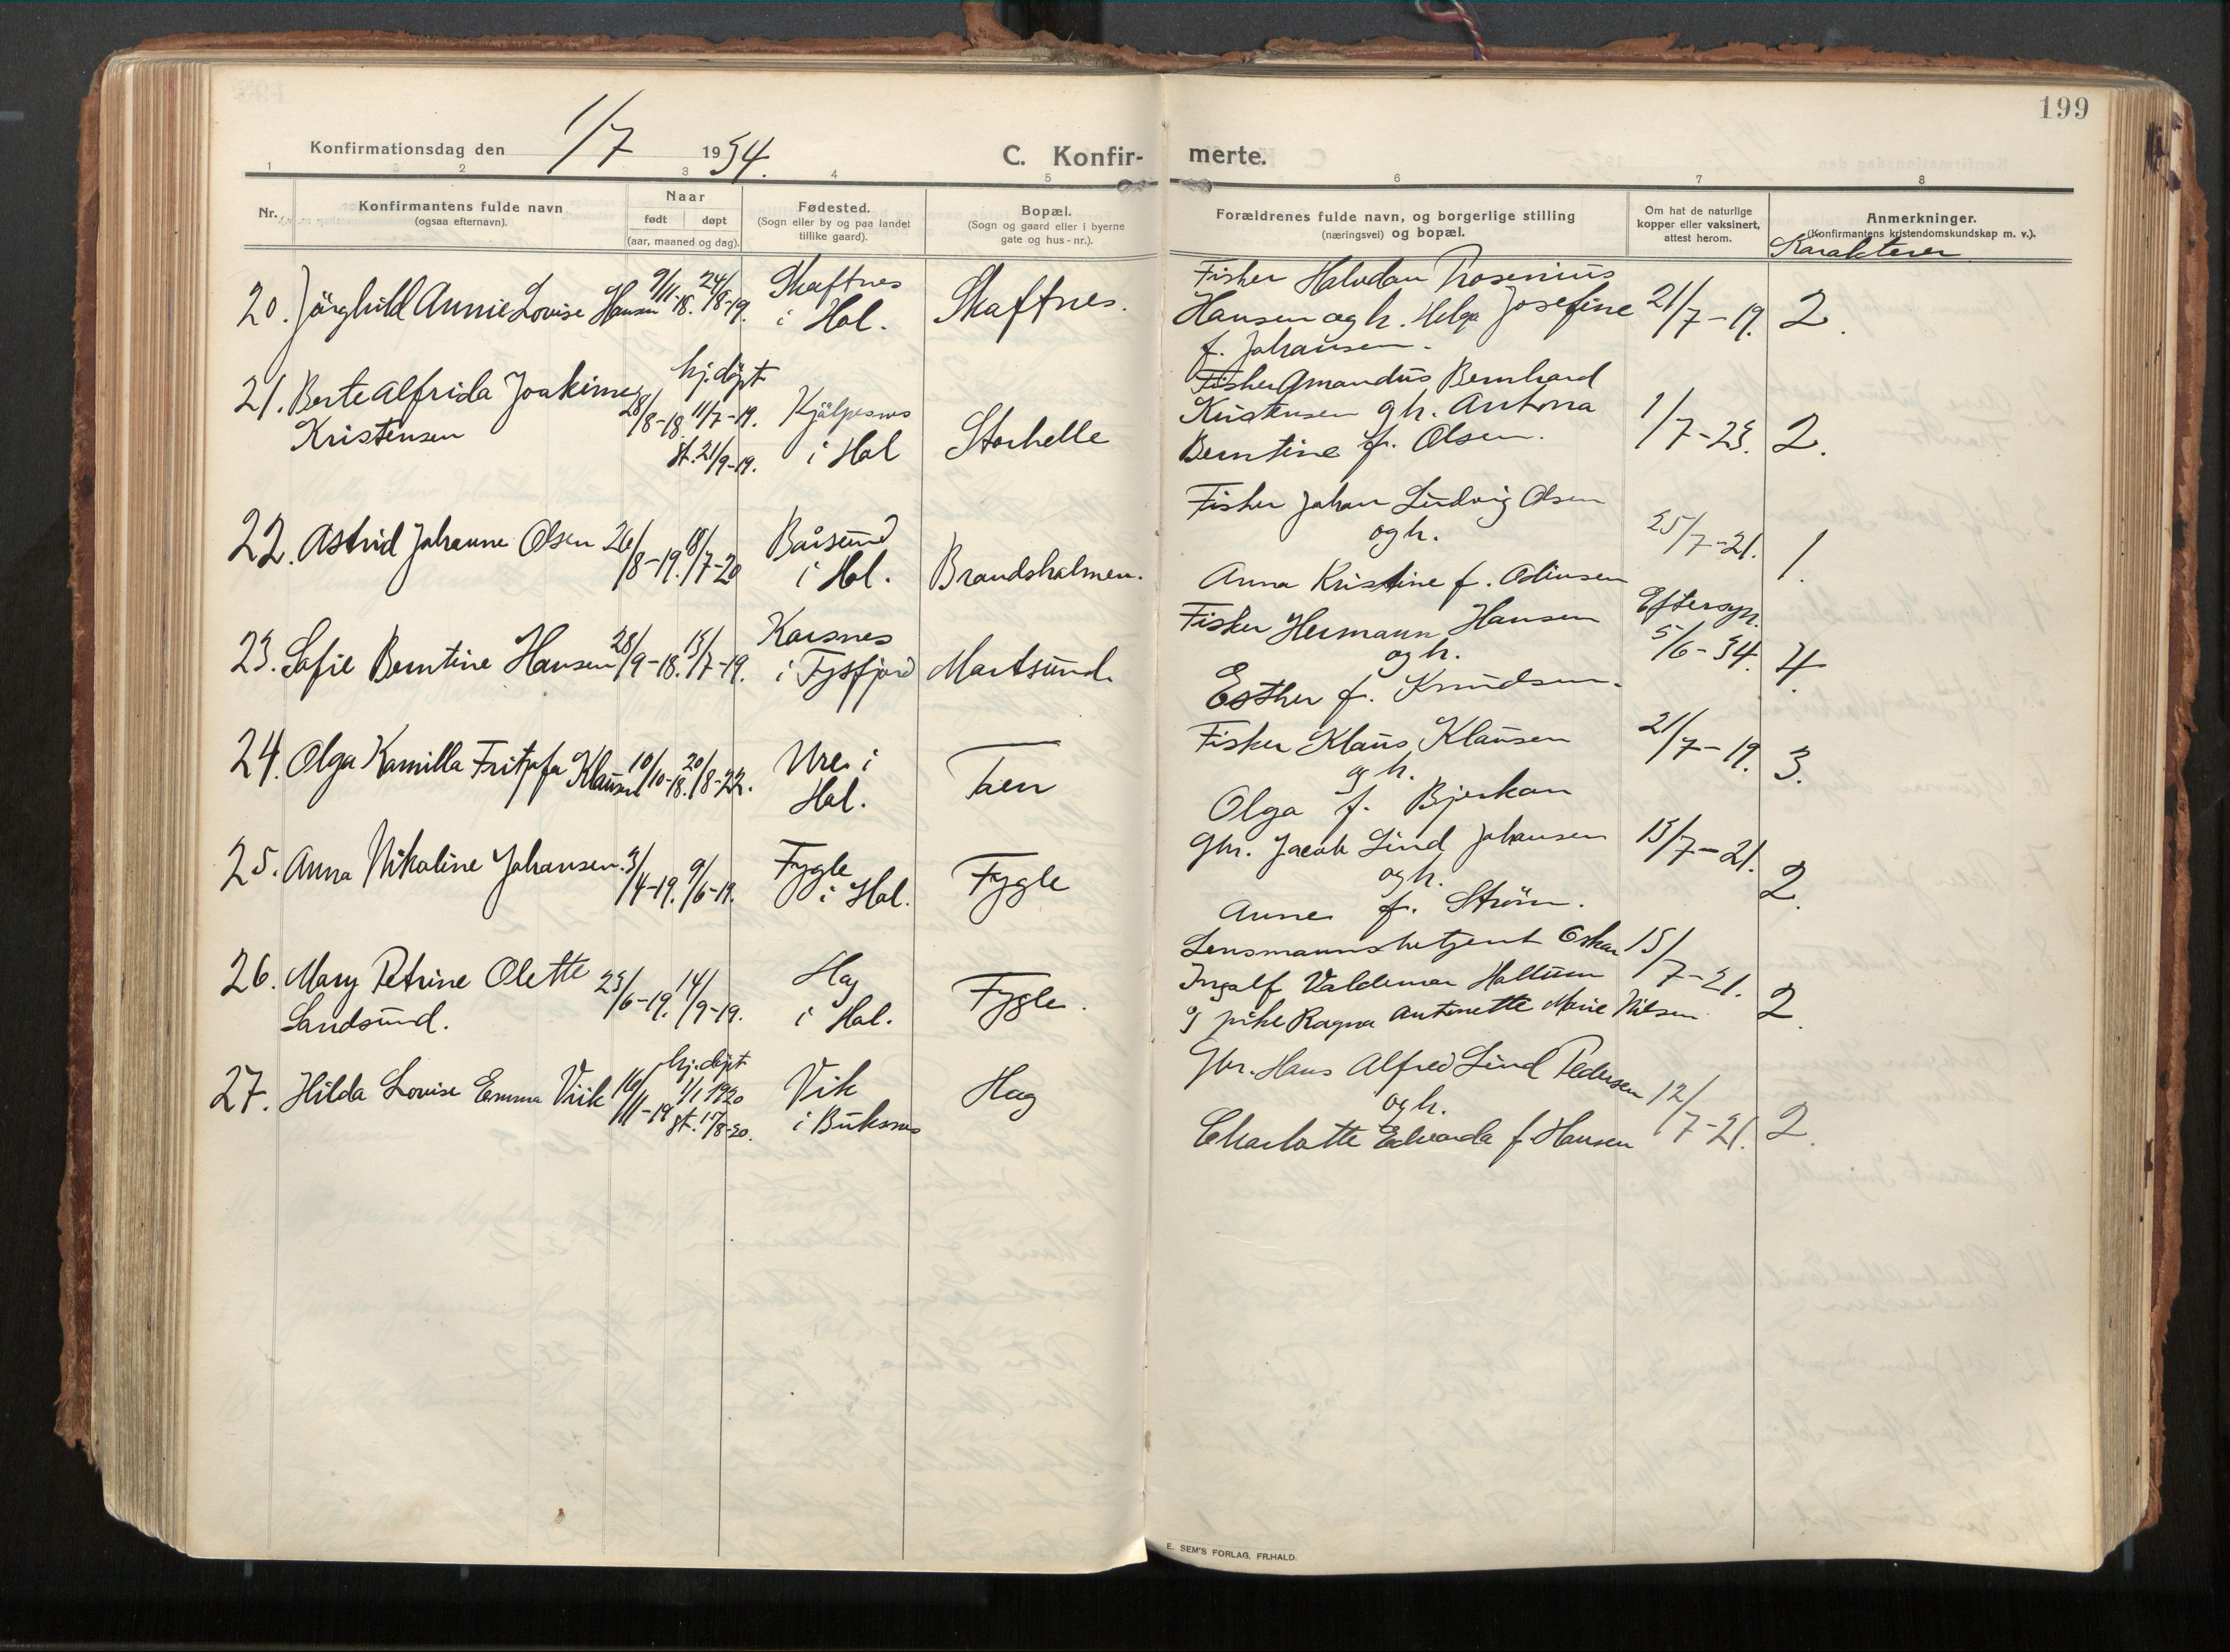 199
Konfirmationsdag den 1/7 1934.
C. Konfir- merte.
1 2 3 4 5 6 7 8
Nr.
Konfirmantens fulde navn
(ogsaa efternavn).
Naar
født døpt
(aar, maaned og dag).
Fødested.
(Sogn eller by og paa landet
tillike gaard).
Bopæl.
(Sogn og gaard eller i byerne
gate og hus-nr.).
Forældrenes fulde navn, og borgerlige stilling
(næringsvei) og bopæl.
Om hat de naturlige
kopper eller vaksinert,
attest herom.
Anmerkninger.
(Konfirmantens kristendomskundskap m. v.).
Karakterer
20. Jörghild Annie Lovise Hansen 9/11-18. 24/8-19. Skaftnes
i Hol. Skaftnes.
Fisker Halvdan Rosenius
Hansen og h. Helga Josefine
f. Johansen.
21/7-19. 2.
21. Berte Alfrida Joakime
Kristensen 28/8-18. hj.döpt
11/7-19.
st. 21/9-19.
i Hol Storhelle
Fisker Amandus Bernhard
Kristensen og h. Antona
Berntine f. Olsen.
1/7-23. 2.
22. Astrid Johanne Olsen 26/8-19. 18/7-20 Bårsund
i Hol. Brandsholmen.
Fisker Johan Ludvig Olsen
og h.
Anna Kristine f. Odinsen
25/7-21. 1.
23. Sofie Berntine Hansen 28/9-18. 13/7-19. Korsnes
i Tysfjord Mortsund.
Fisker Hermann Hansen
og h.
Esther f. Knudsen.
Eftersyn.
5/6-34. 4.
24. Olga Kamilla Fritjofa Klausen 10/10-18. 20/8-22. Ure i
Hol. Toen
Fisker Klaus Klausen
og h.
Olga f. Bjerkan
21/7-19. 3.
25. Anna Nikoline Johansen. 3/4-19. 9/6-19. Fygle
i Hol. Fygle
Gbr. Jacob Lind Johansen
og h.
Anne f. Ström.
15/7-21. 2.
26. Mary Petrine Olette
Sandsund. 23/6-19. 14/9-19. Hag
i Hol. Fygle.
Lensmannsbetjent Oskar
Ingolf Valdemar Hallum
og pike Ragna Antonette Marie Nilsen
15/7-21. 2.
27. Hilda Lovise Emma Vik 16/11-19 hj.döpt
1/1 1920
st. 15/8-20. Vik
i Buksnes Hag
Gbr. Hans Alfred Lind Pedersen
og h.
Charlotte Edvarda f. Hansen
12/7-21. 2.
E. SEM'S FORLAG, FR.HALD.